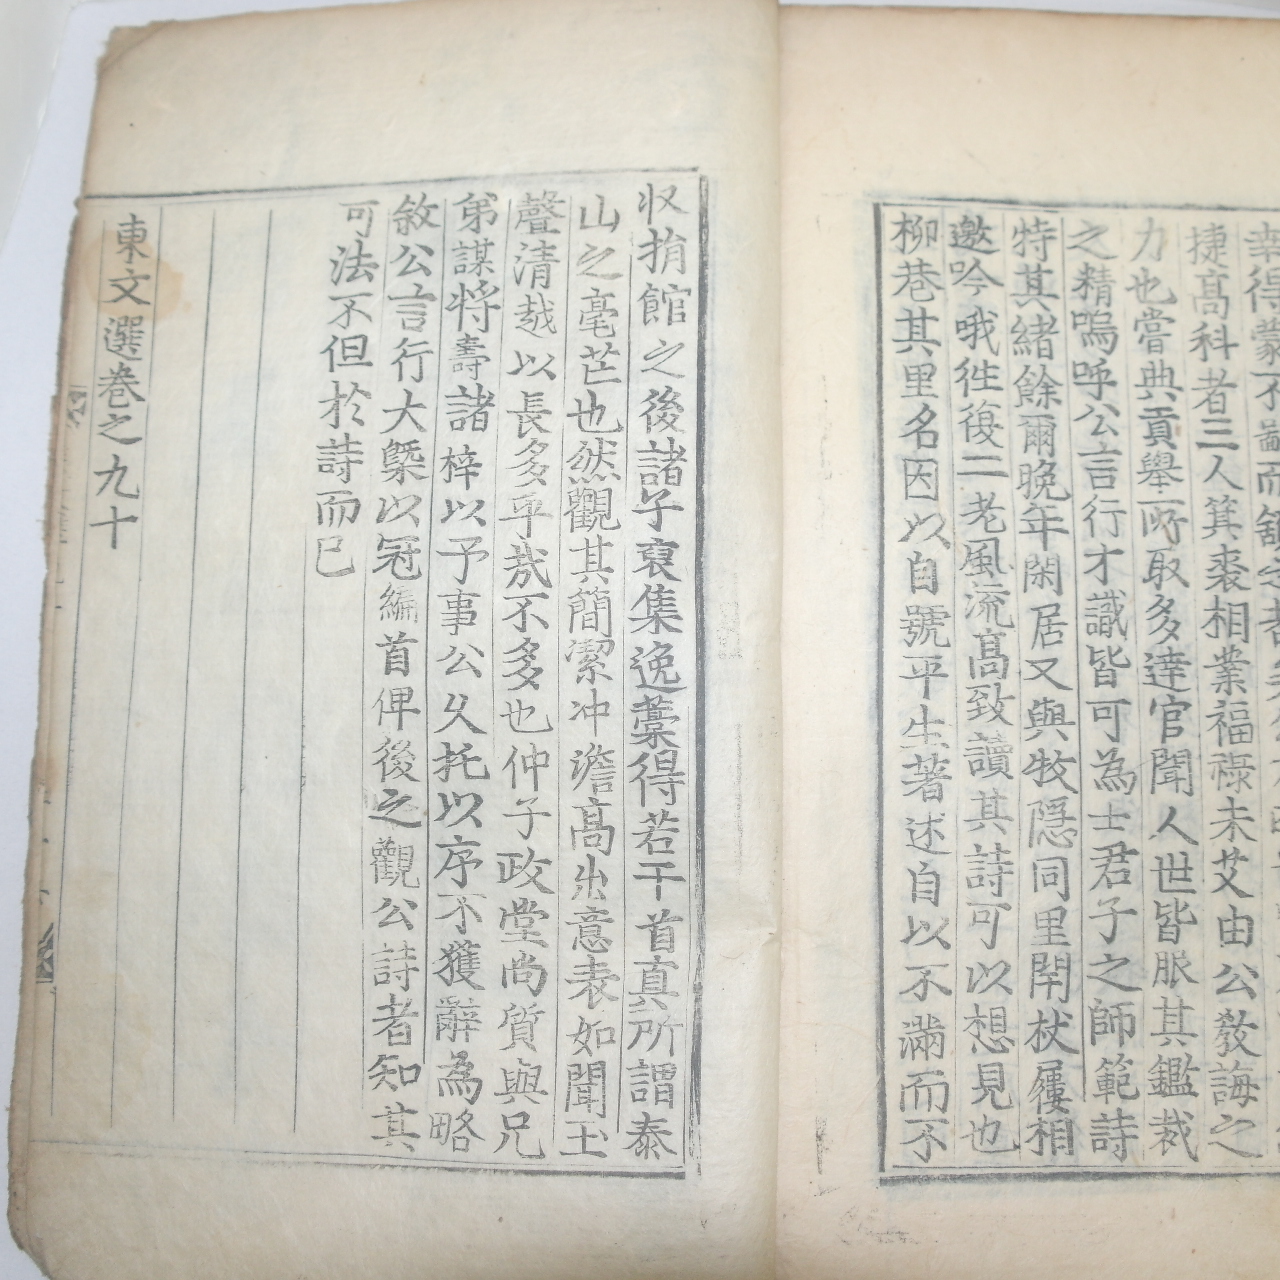 幸得蒙不鄙而
捷高科者三人箕裘相業福祿未艾由公敎誨之
力也嘗典貢舉所取多達官聞人世皆服其鑑裁
之精嗚呼公言行才識皆可為士君子之師範詩
特其緖餘爾晚年閑居又與牧隱同里閈杖屨相
邀吟哦往復二老風流高致讀其詩可以想見也
柳巷其里名因以自號平生著述自以不滿而不
収捐館之後諸子裒集逸藁得若干首真所謂泰
山之毫芒也然觀其簡潔冲澹高出意表如聞玉
聲清越以長多乎哉不多也仲子政堂尚質與兄
弟謀將壽諸梓以予事公久托以序不獲辭為略
敘公言行大槩以冠編首俾後之觀公詩者知其
可法不但於詩而已
東文選卷之九十